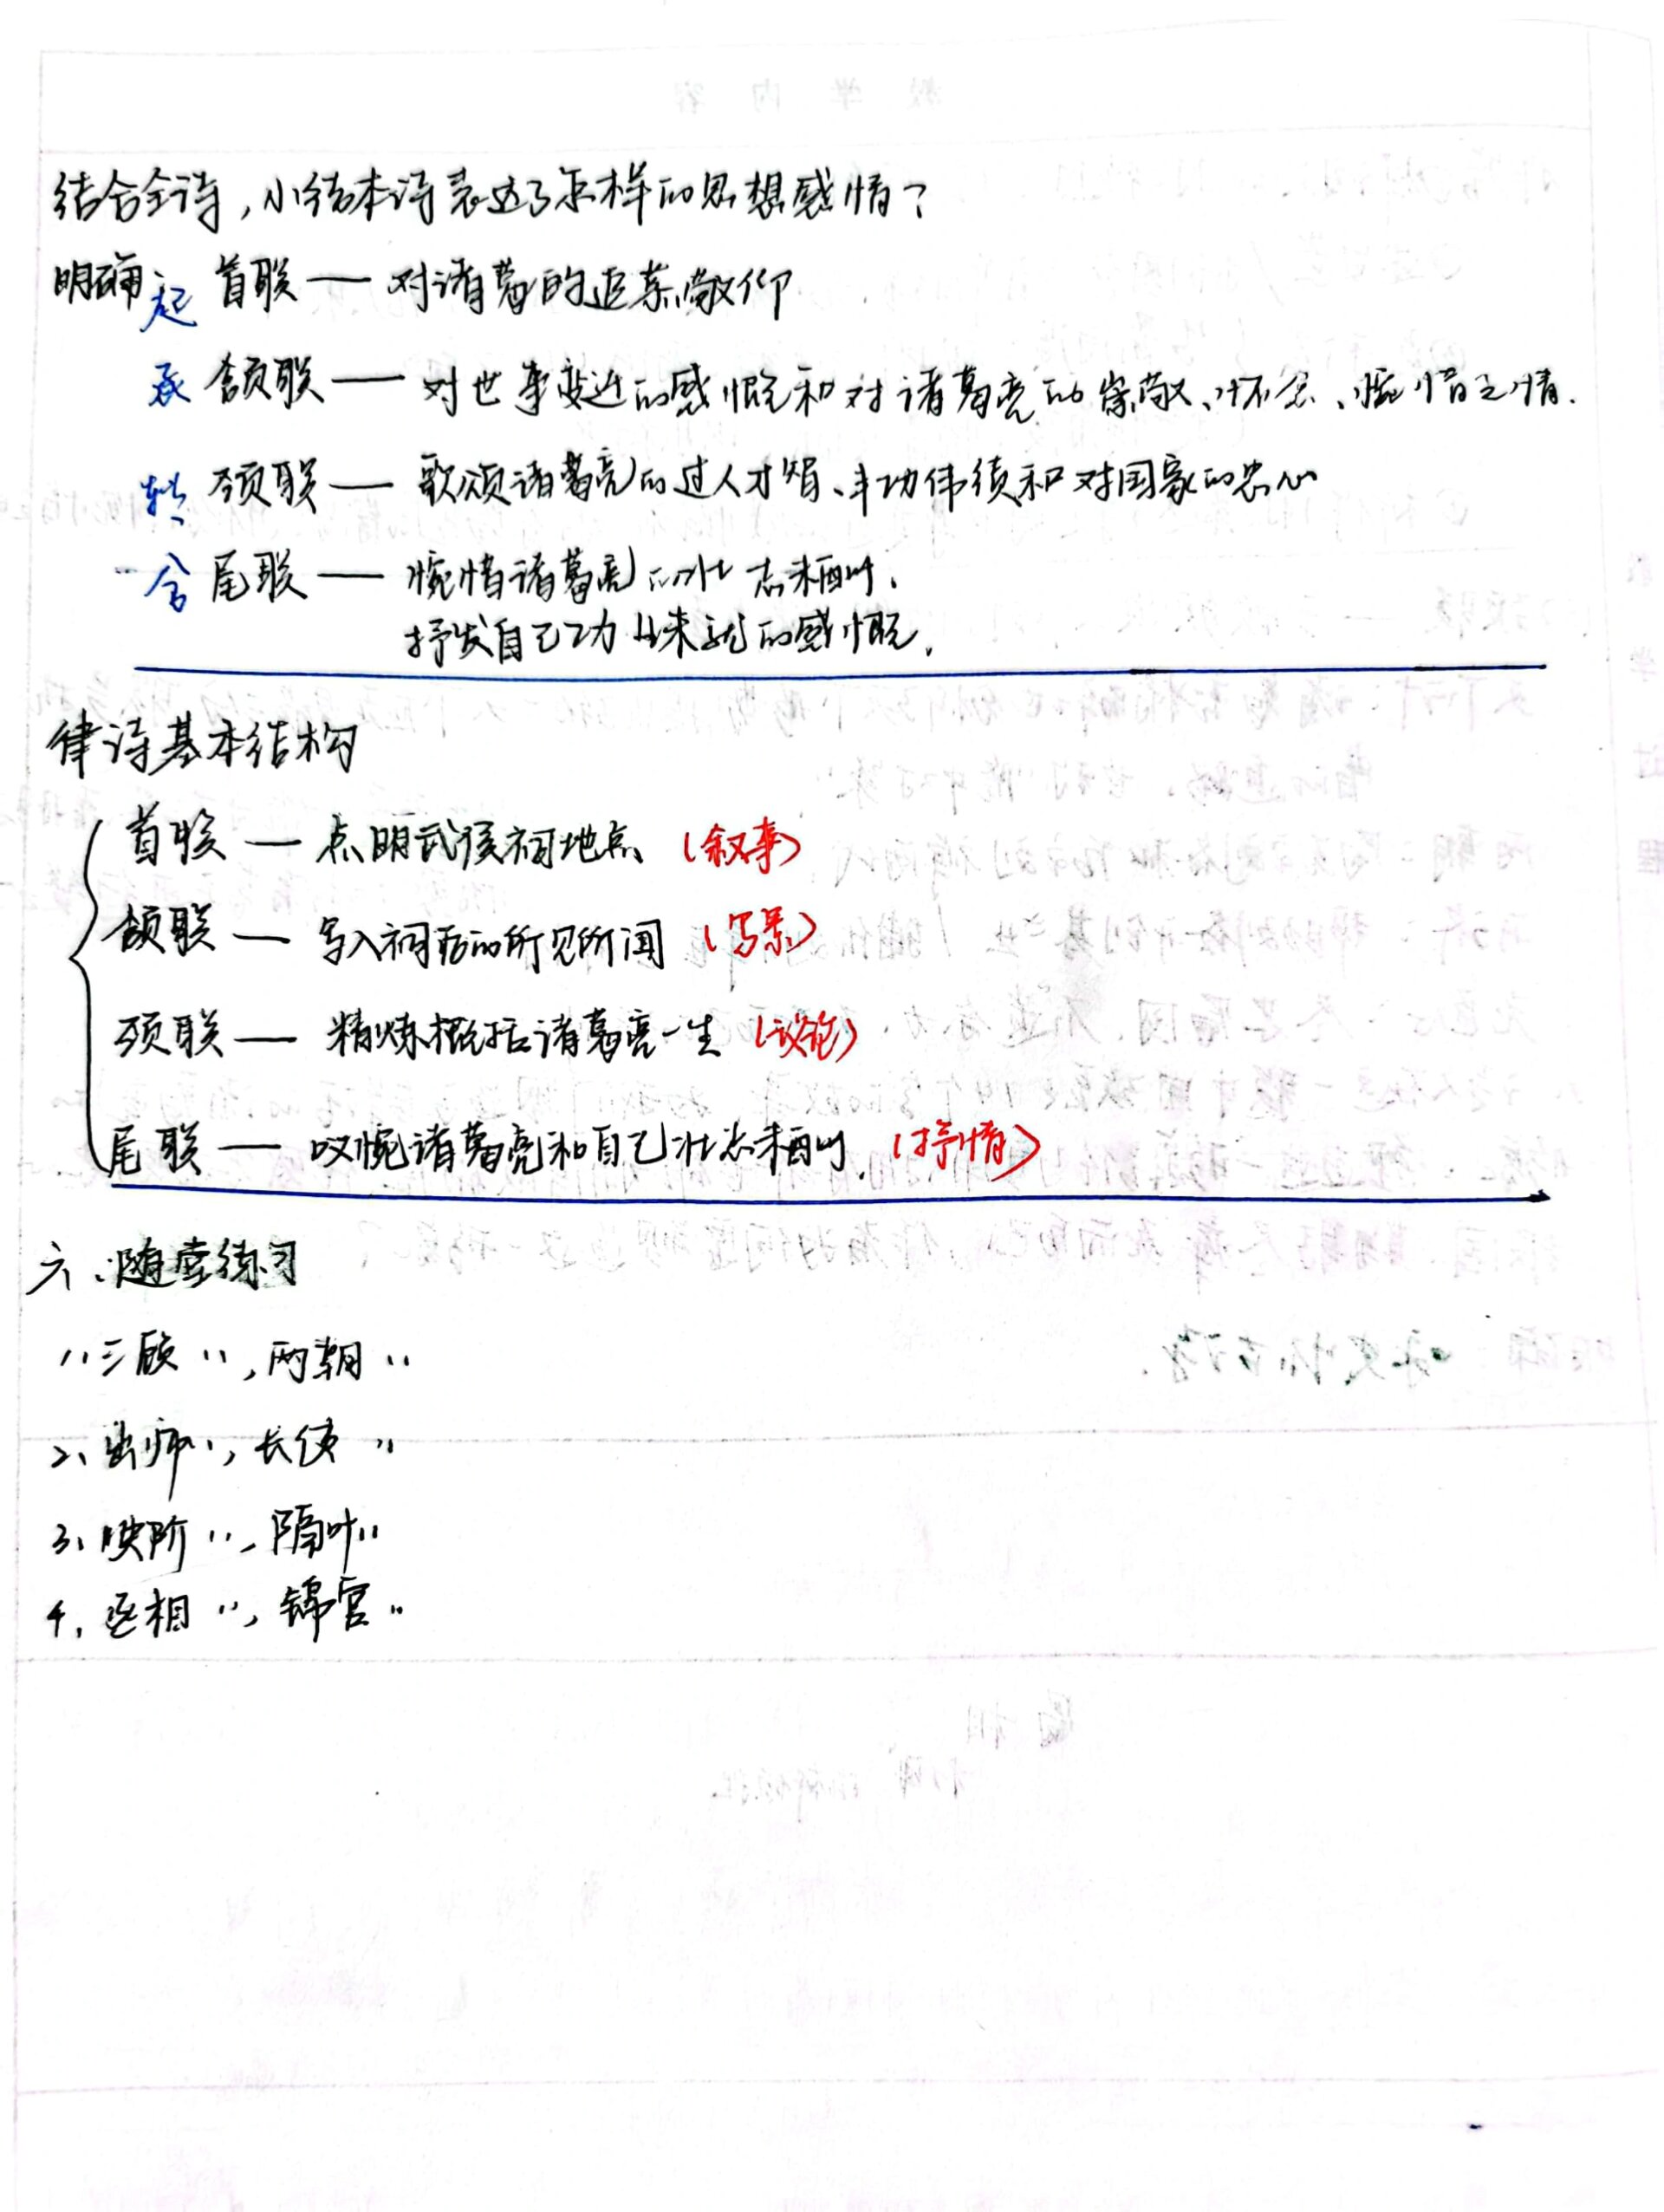 结合全诗,小结本诗表达了怎样的思想感情?
明确 起 首联 — 对诸葛的追慕、敬仰
承 颔联 — 对世事变迁的感慨和对诸葛亮的崇敬、怀念、惋惜之情.
转 颈联 — 歌颂诸葛亮的过人才智、丰功伟绩和对国家的忠心
合 尾联 — 惋惜诸葛亮的壮志未酬、
抒发自己功业未就的感慨.
律诗基本结构
首联 — 点明武侯祠地点 (叙事)
颔联 — 写入祠后的所见所闻 (写景)
颈联 — 精炼概括诸葛亮一生 (议论)
尾联 — 叹惋诸葛亮和自己壮志未酬. (抒情)
六、随堂练习
1、三顾 ‥,两朝 ‥
2、出师‥,长使 ‥
3、映阶 ‥,隔叶‥
4、丞相 ‥,锦官 ‥